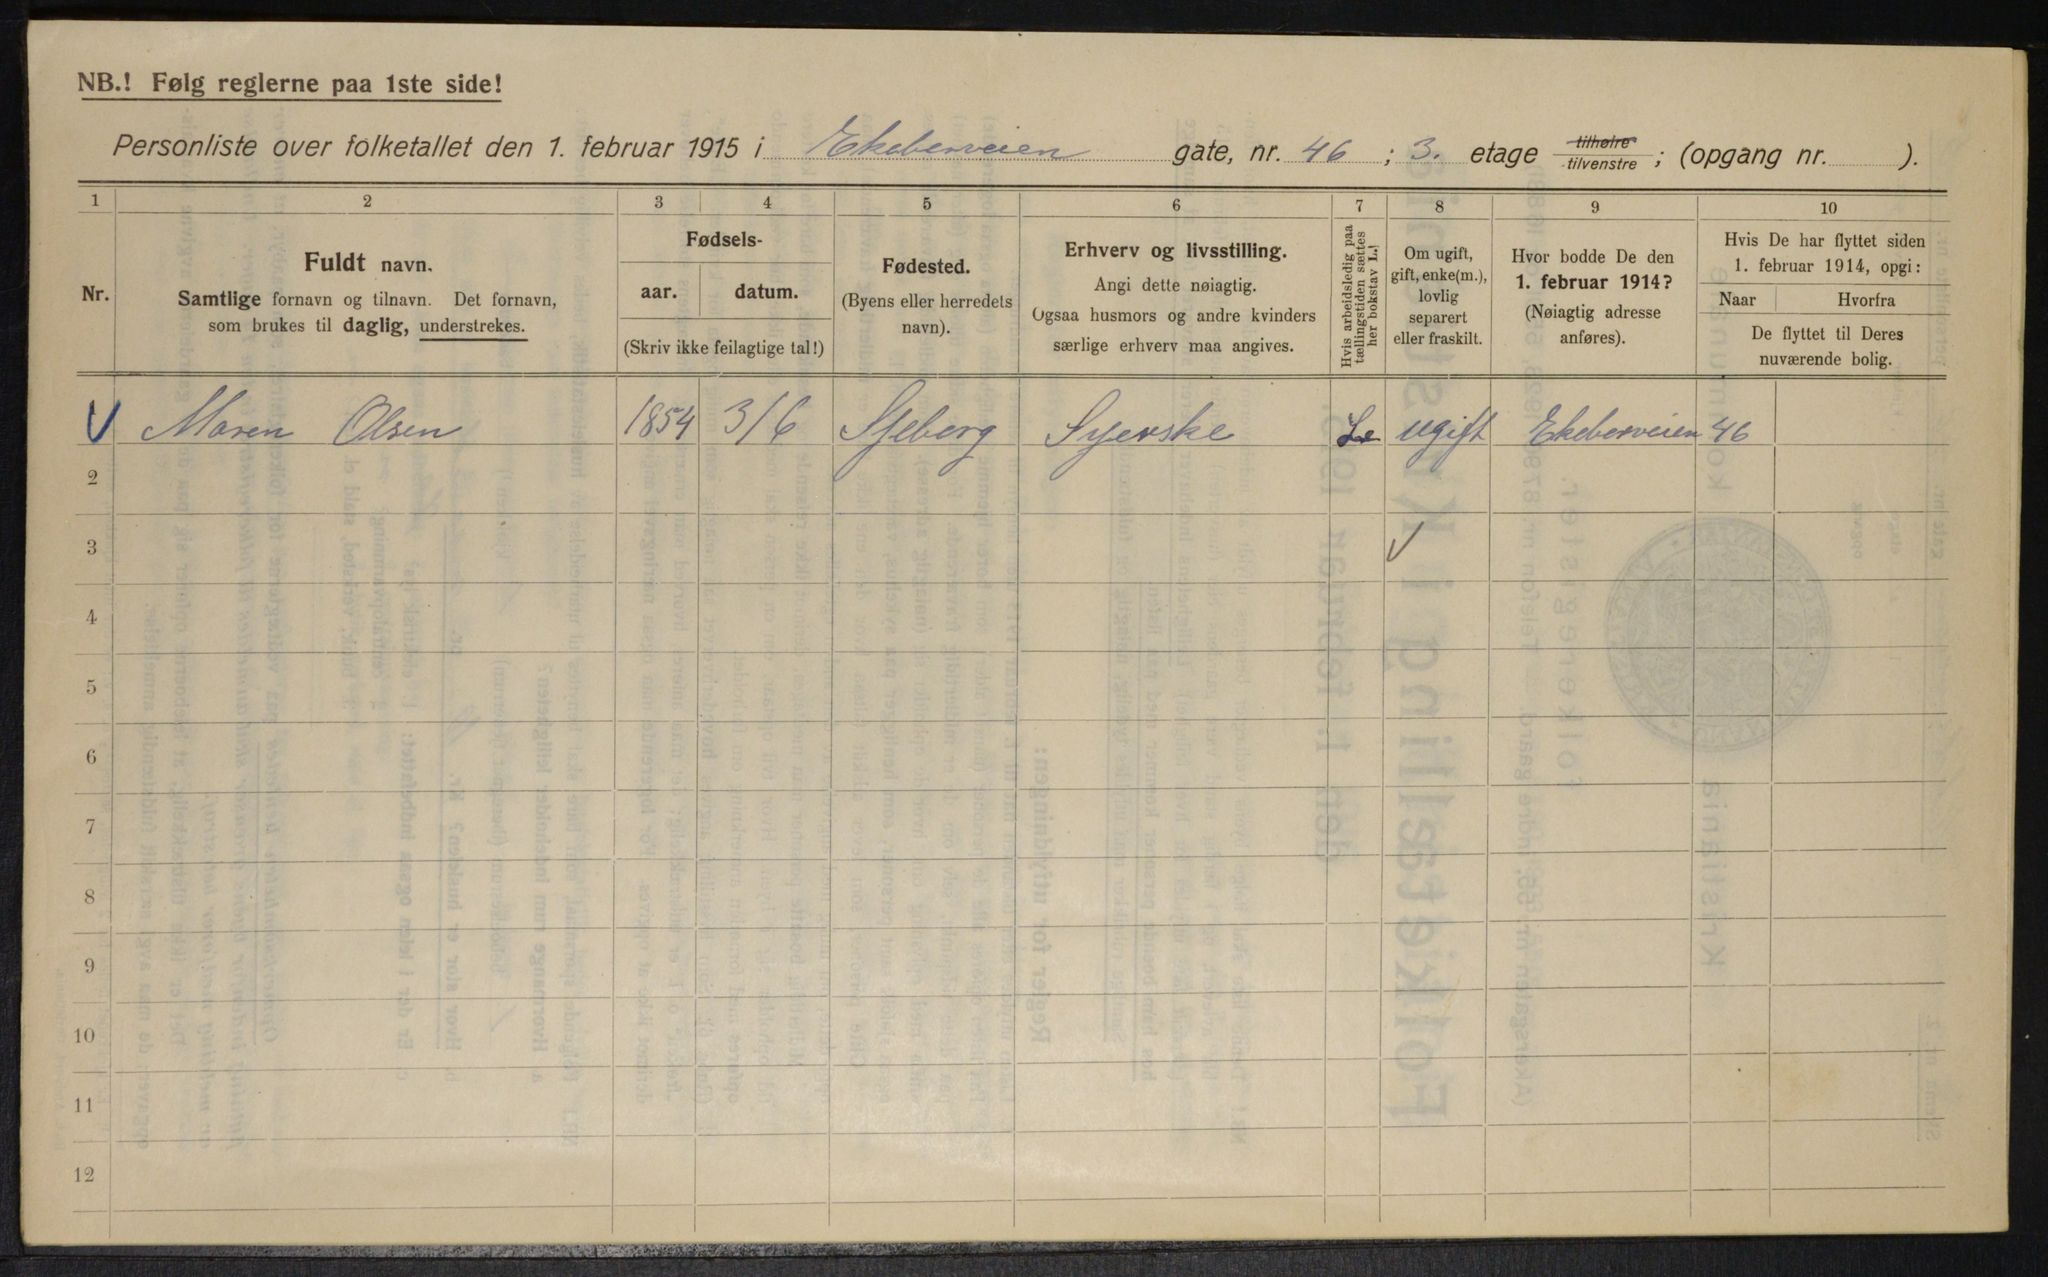 NB.! Følg reglerne paa 1ste side!
Personliste over folketallet den 1. februar 1915 i Ekeberveien gate, nr. 46 ; 3. etage tilhøire/tilvenstre ; (opgang nr. ).
1 2 3 4 5 6 7 8 9 10
Nr.
Fuldt navn.
Samtlige fornavn og tilnavn. Det fornavn,
som brukes til daglig, understrekes.
Fødsels-
aar. datum.
(Skriv ikke feilagtige tal!)
Fødested.
(Byens eller herredets
navn).
Erhverv og livsstilling.
Angi dette nøiagtig.
Ogsaa husmors og andre kvinders
særlige erhverv maa angives.
Hvis arbeidsledig paa
tællingstiden sættes
her bokstav L.!
Om ugift,
gift, enke(m.),
lovlig
separert
eller fraskilt.
Hvor bodde De den
1. februar 1914?
(Nøiagtig adresse
anføres).
Hvis De har flyttet siden
1. februar 1914, opgi:
Naar Hvorfra
De flyttet til Deres
nuværende bolig.
Maren Olsen 1854 3/6 Sjeberg Syerske ugift Ekeberveien 46
2
3
4
5
6
7
8
9
10
11
12